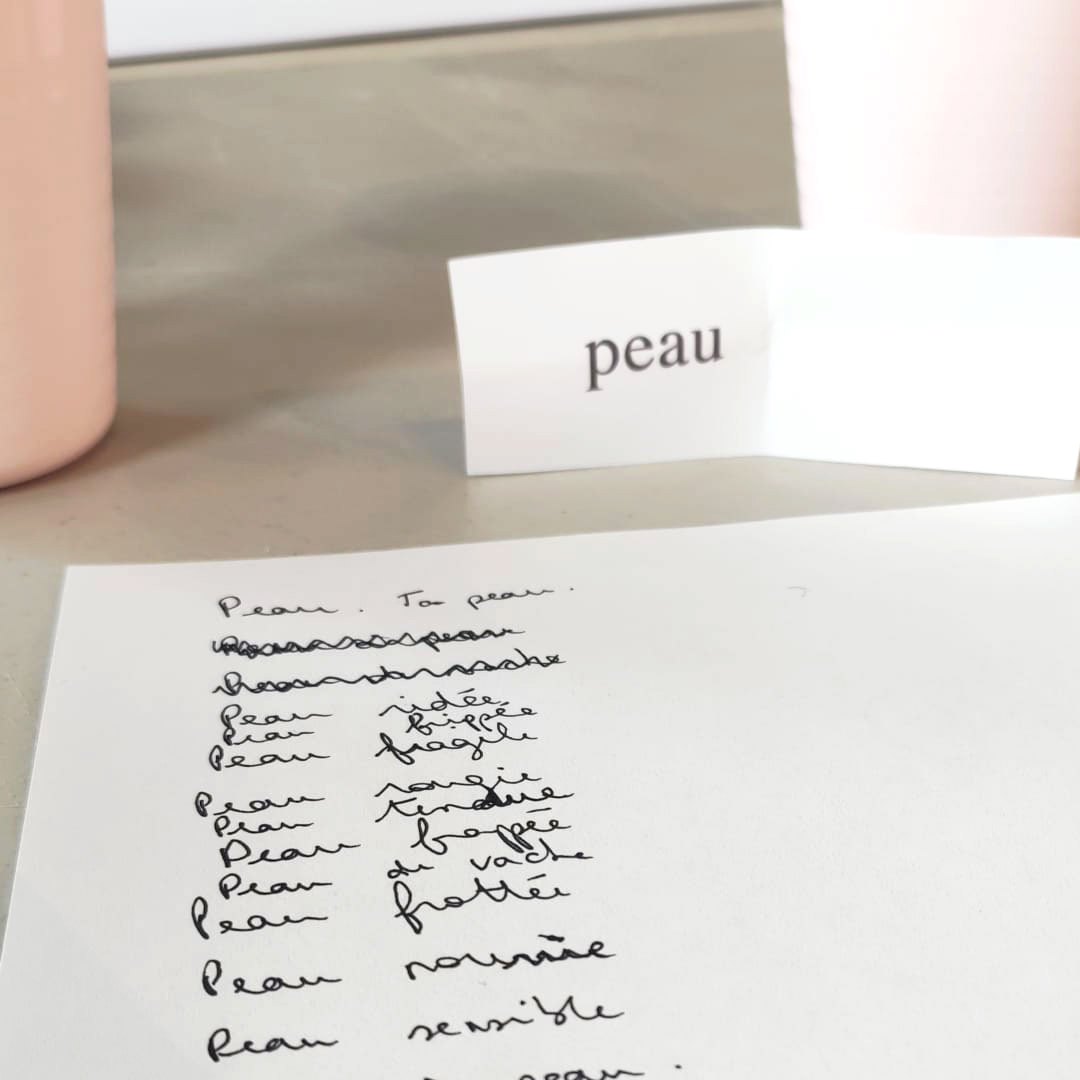 peau
Peau. Ta peau.
Peau ridée
Peau frippée
Peau fragile
Peau rougie
Peau tendue
Peau frappée
Peau de vache
Peau frottée
Peau
Peau sensible
peau.